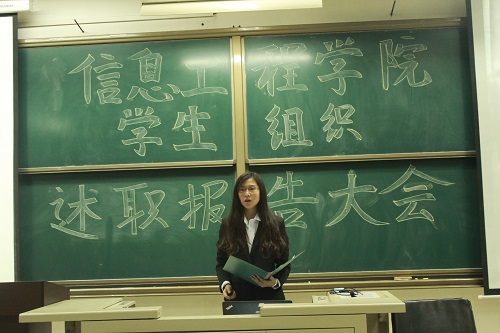 信息工程学院
学生组织
述职报告大会